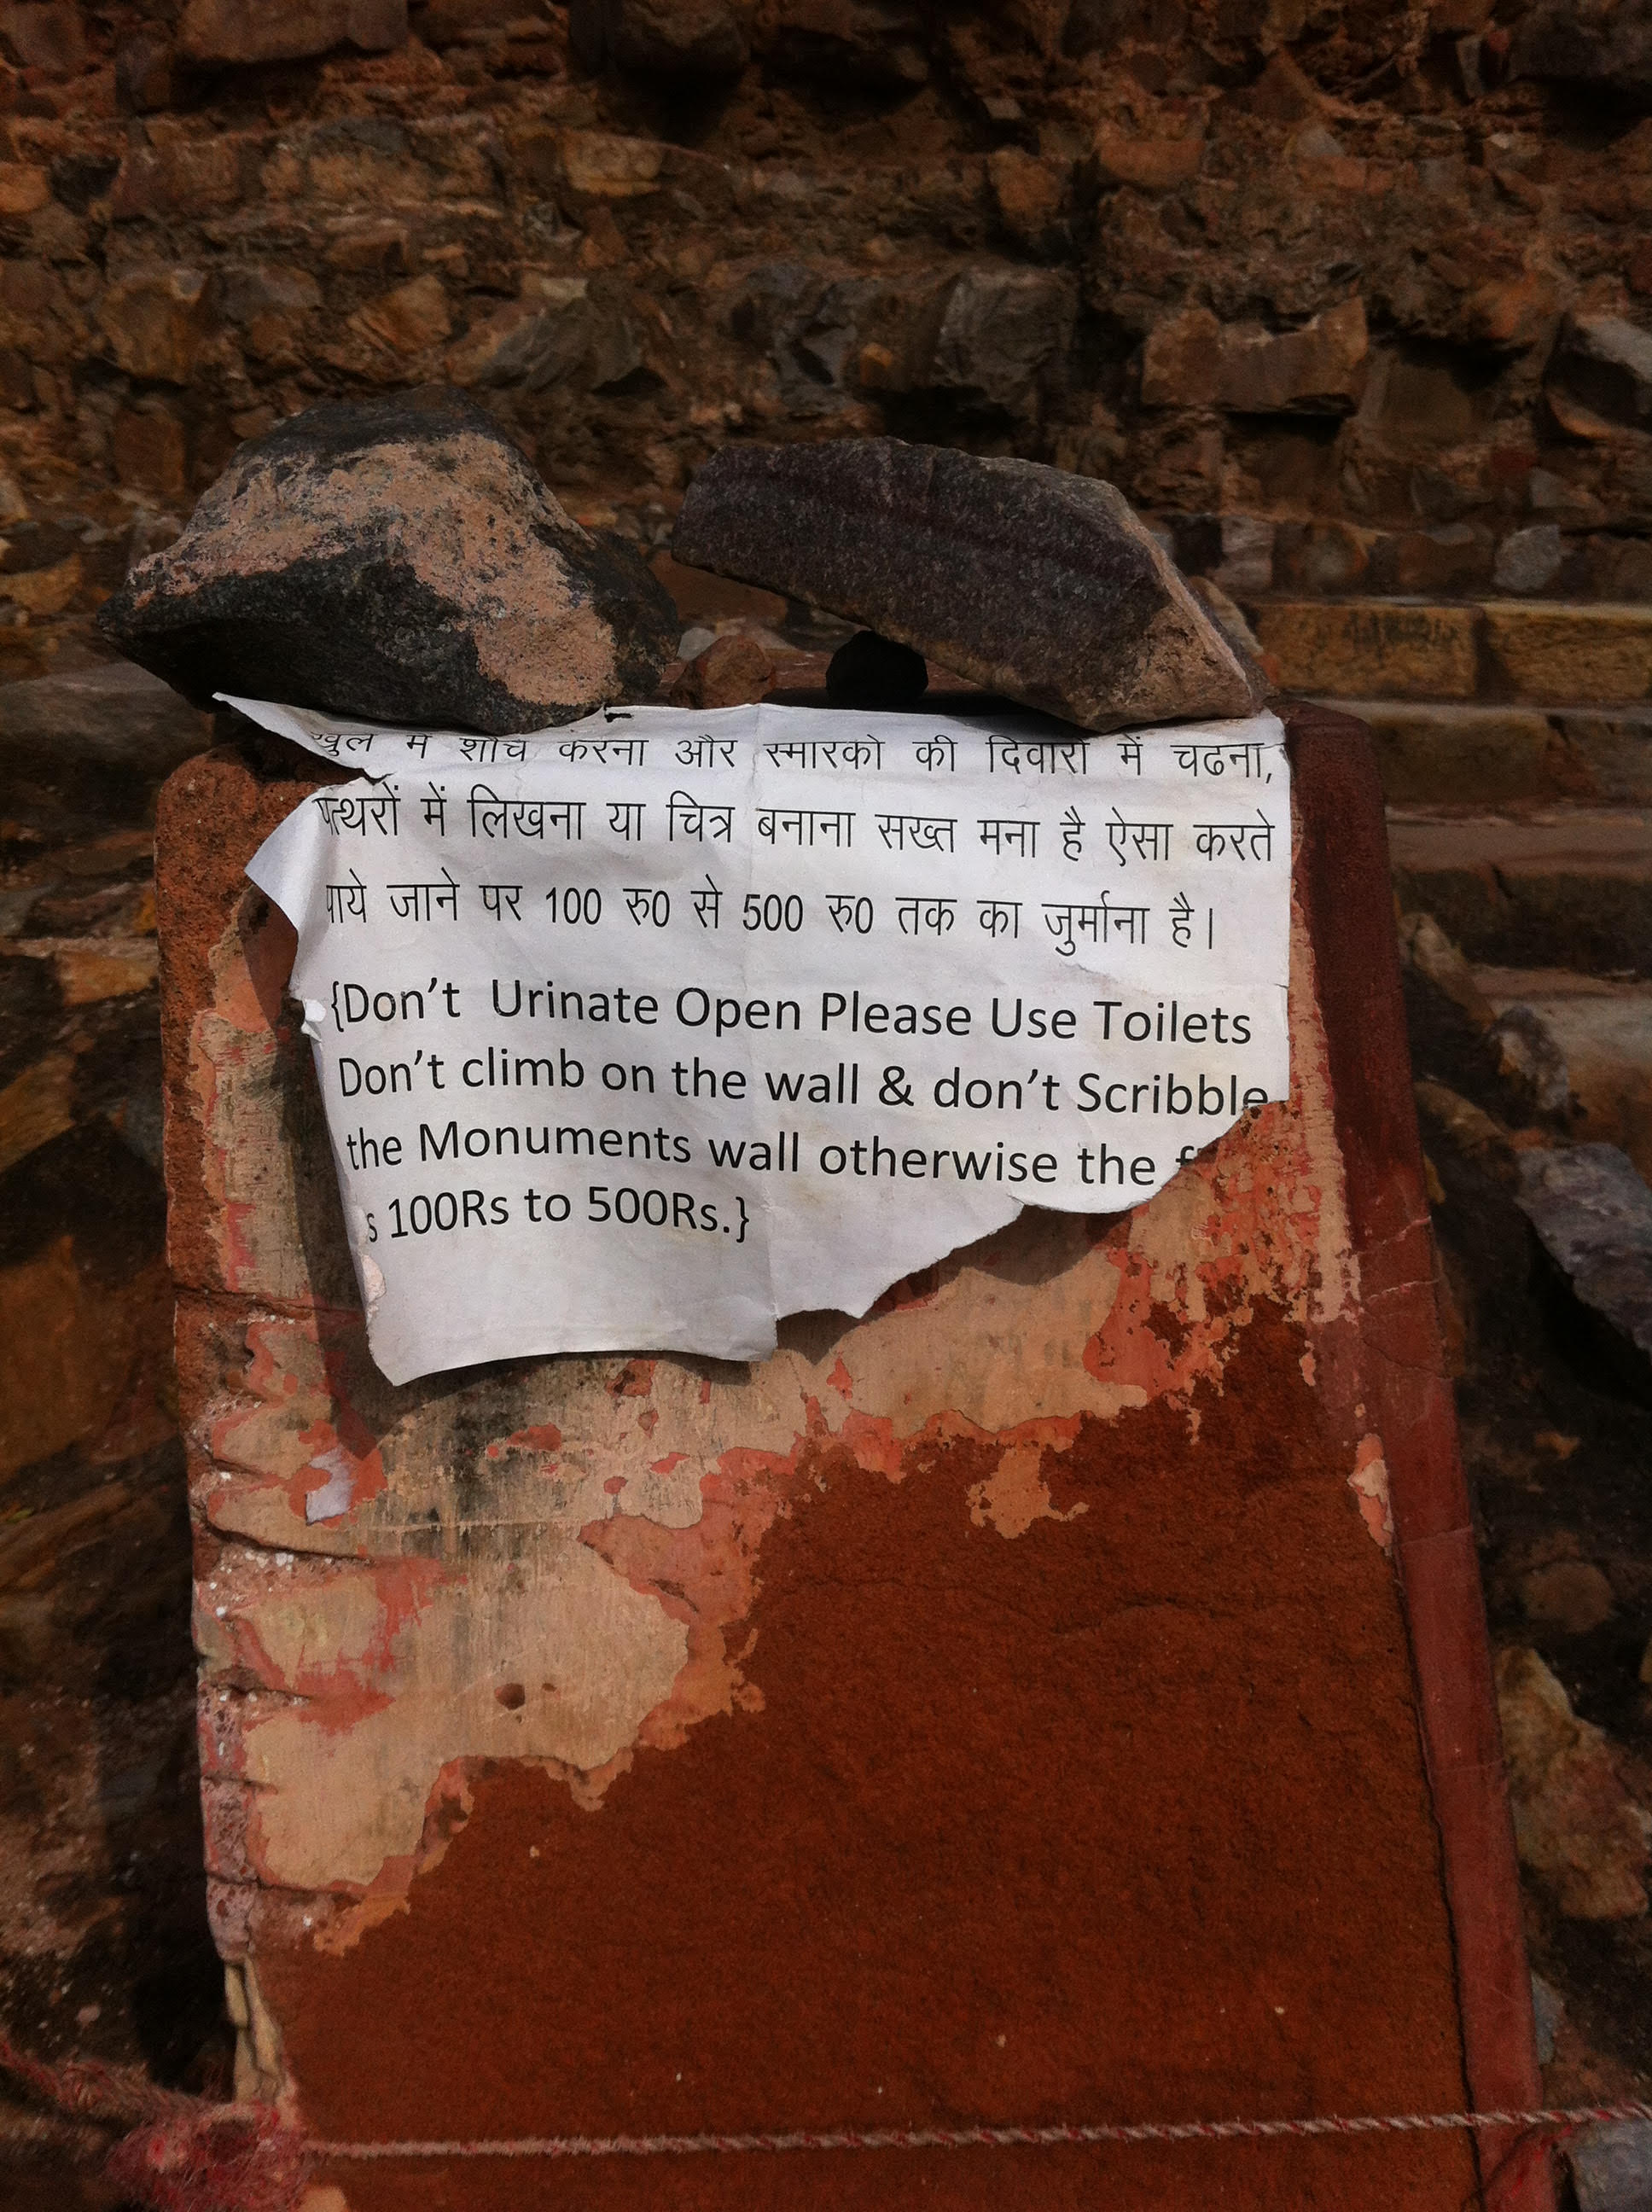 खुले में शौच करना और स्मारकों की दिवारों में चढना,
पत्थरों में लिखना या चित्र बनाना सख्त मना है ऐसा करते
पाये जाने पर 100 रु0 से 500 रु0 तक का जुर्माना है।
{Don't Urinate Open Please Use Toilets
Don't climb on the wall & don't Scribble
the Monuments wall otherwise the
s 100Rs to 500Rs.}